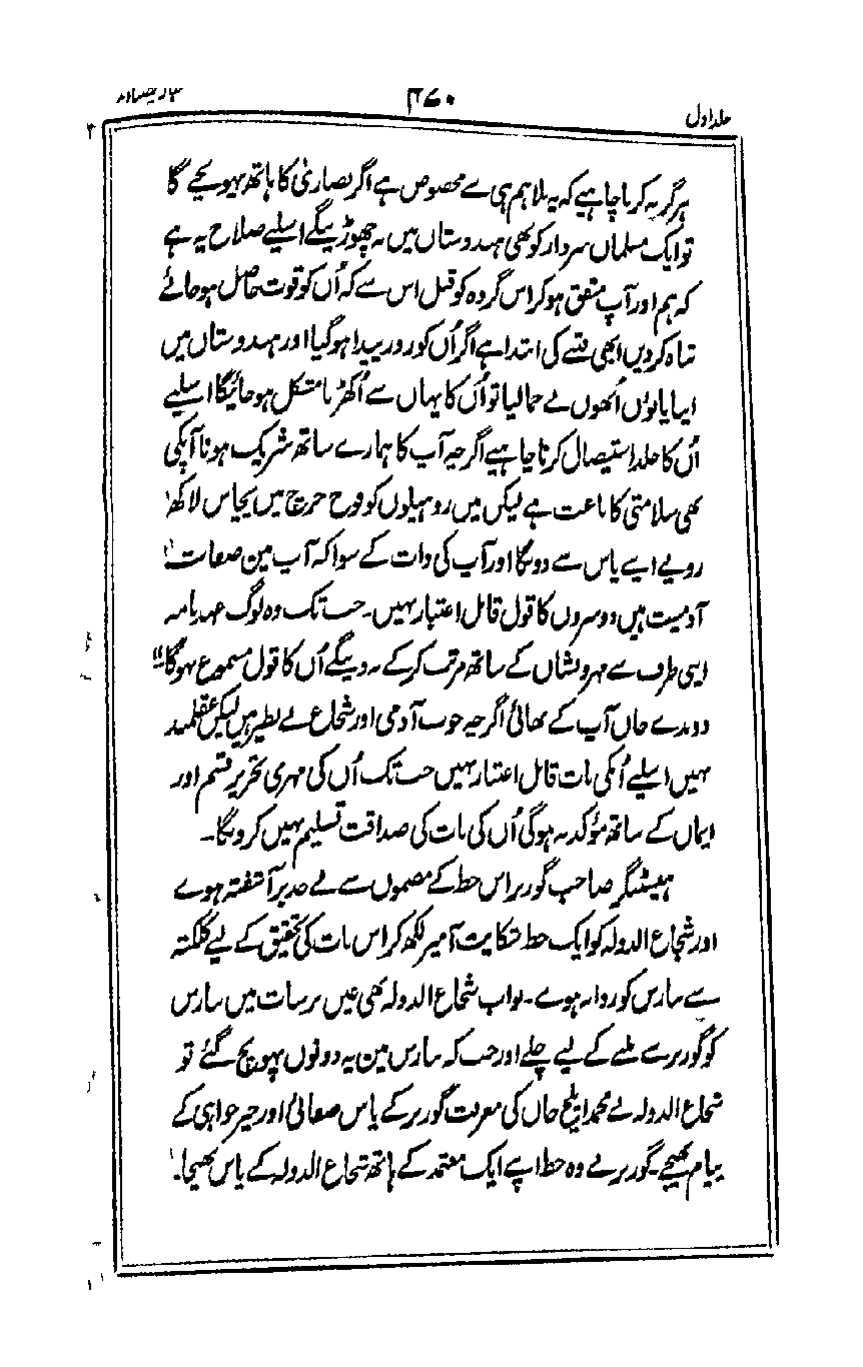 جلد اول ۴۷۰
ہرگز نہ کرنا چاہیے کہ یہ بلا ہم ہی سے مخصوص ہے اگر نصاریٰ کا ہاتھ پہونچے گا
تو ایک مسلمان سردار کو بھی ہندوستان میں نہ چھوڑینگے اسلیے صلاح یہ ہے
کہ ہم اور آپ متفق ہوکر اس گروہ کو قبل اس سے کہ اُن کو قوت حاصل ہوجائے
تباہ کردیں ابھی فتنے کی ابتدا ہے اگر اُن کو زور پیدا ہوگیا اور ہندوستان میں
اپنا پانوں اُنھوں نے جمالیا تو اُن کا یہاں سے اُکھڑنا مشکل ہوجائیگا اسلیے
اُن کا جلد استیصال کرنا چاہیے اگرچہ آپ کا ہمارے ساتھ شریک ہونا آپکی
بھی سلامتی کا باعث ہے لیکن میں روہیلوں کو فوج خرچ میں پچاس لاکھ
روپے اپنے پاس سے دونگا اور آپ کی ذات کے سوا کہ آپ مین صفات
آدمیت ہیں دوسروں کا قول قابل اعتبار نہیں۔ جب تک وہ لوگ عہدنامہ
اپنی طرف سے مہر و نشان کے ساتھ مرتب کرکے نہ دینگے اُن کا قول مسموع نہوگا"
دوندے خاں آپ کے بھائی اگرچہ خوب آدمی اور شجاع بے نظیر ہیں لیکن عقلمند
نہیں اسلیے اُنکی بات قابل اعتبار نہیں جب تک اُن کی مہری تحریر قسم اور
ایمان کے ساتھ مؤکد نہ ہوگی اُن کی بات کی صداقت تسلیم نہیں کرونگا۔
ہیسٹنگز صاحب گورنر اس خط کے مضمون سے بے حد برآشفتہ ہوے
اور شجاع الدولہ کو ایک خط شکایت آمیز لکھ کر اس بات کی تحقیق کے لیے کلکتہ
سے بنارس کو روانہ ہوے۔ نواب شجاع الدولہ بھی عین برسات میں بنارس
کو گورنر سے ملنے کے لیے چلے اور جب کہ بنارس مین یہ دونوں پہونچ گئے تو
شجاع الدولہ نے محمد ایلچ خان کی معرفت گورنر کے پاس صفائی اور خیرخواہی کے
پیام بھیجے۔ گورنر نے وہ خط اپنے ایک معتمد کے ہاتھ شجاع الدولہ کے پاس بھیجا۔